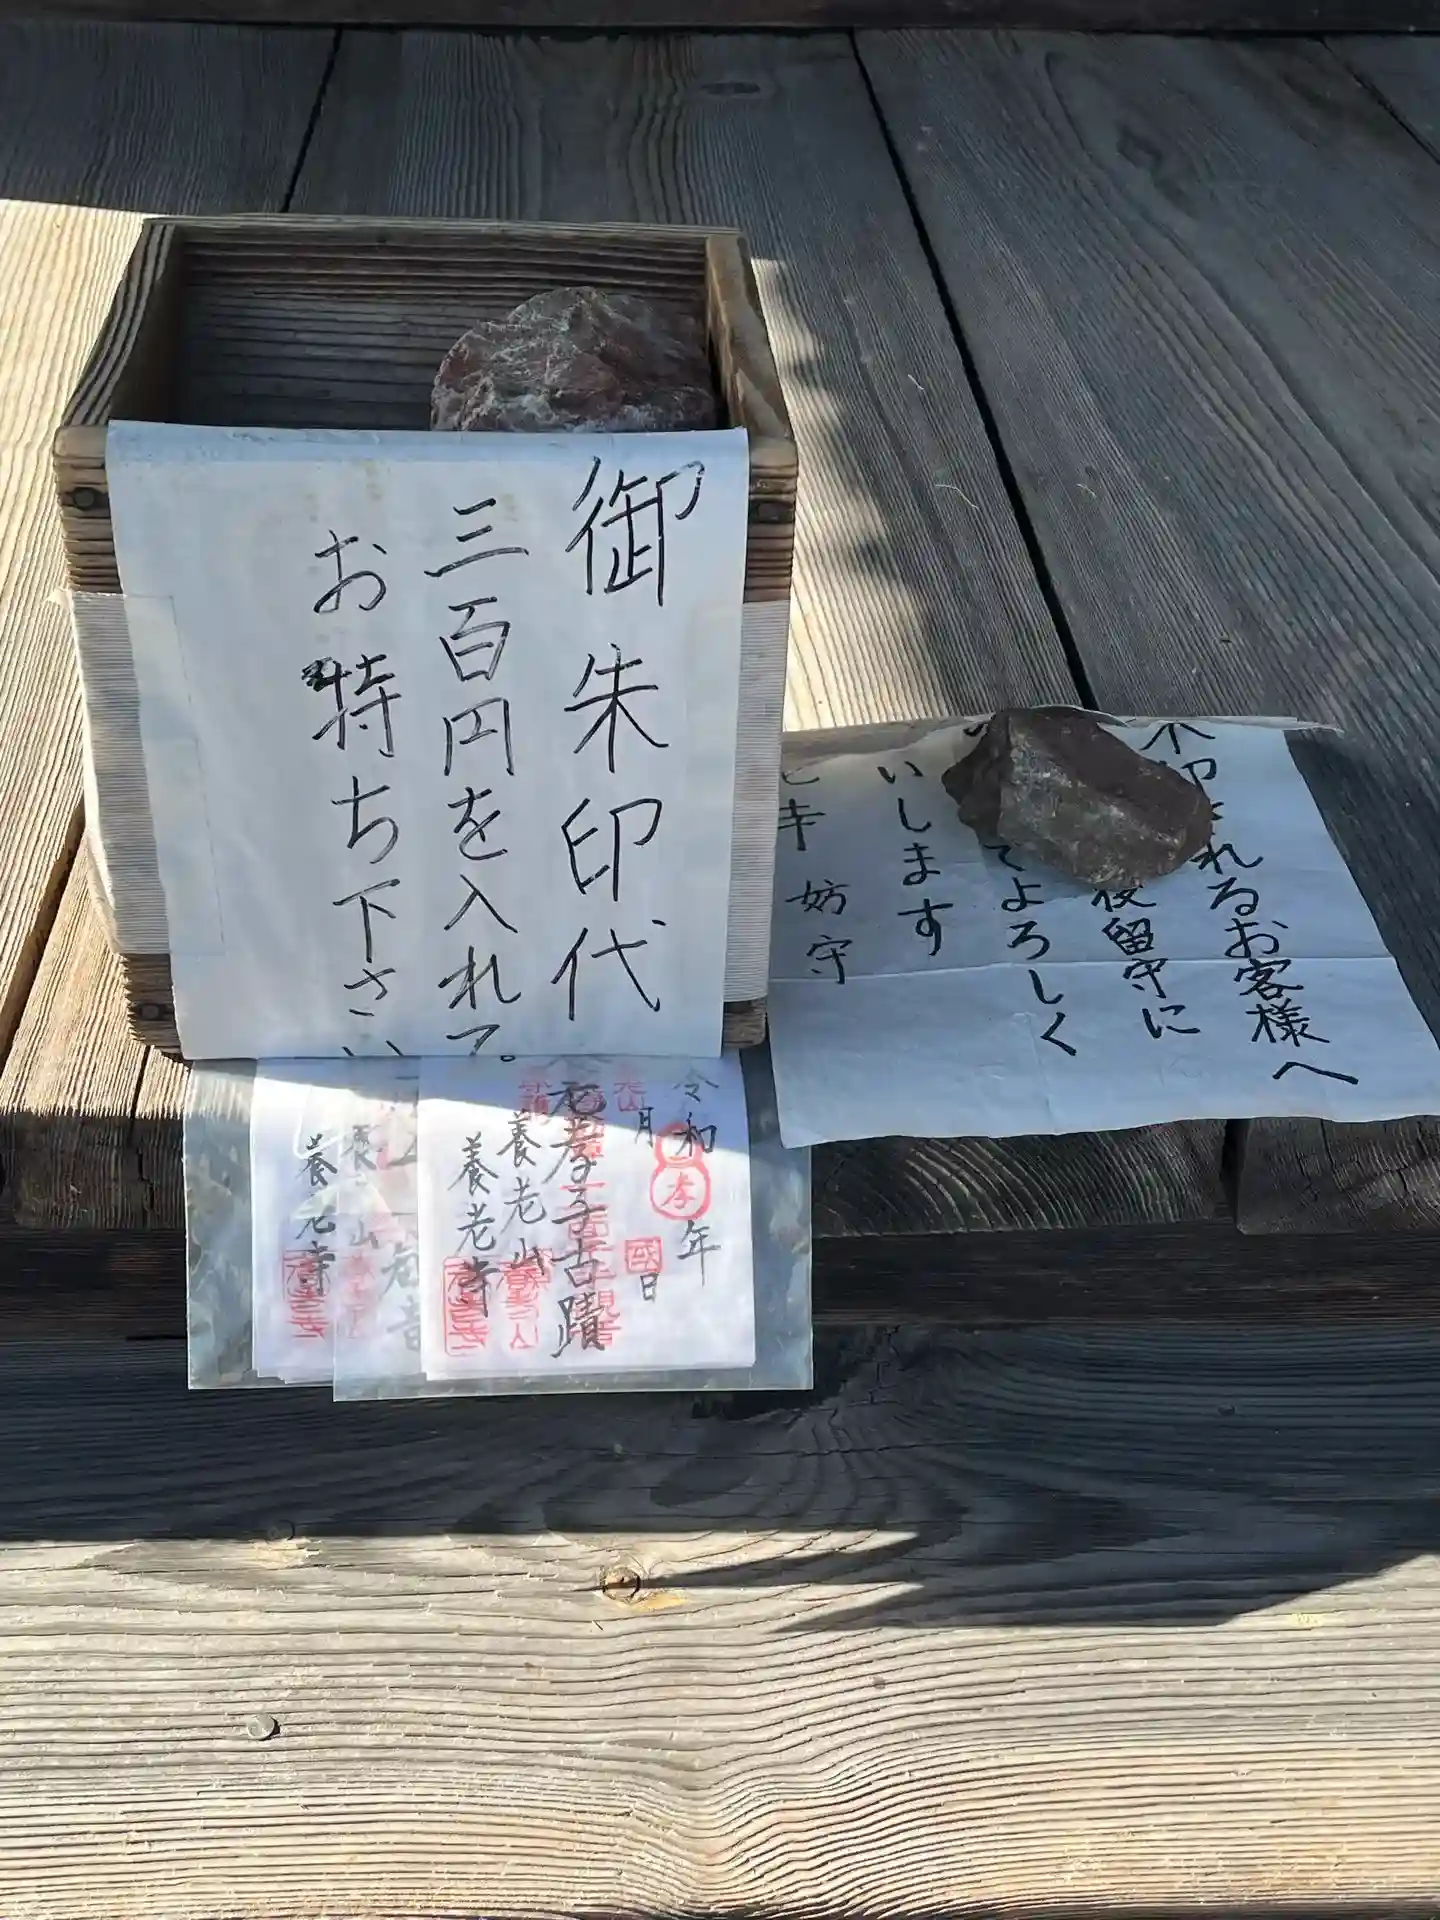 御朱印代
三百円を入れて。
お持ち下さい
印されるお客様へ
留守に
てよろしく
いします
寺 坊守
令和 年
月 日
孝
元孝子古蹟
養老山
養老寺
養老山
養老寺